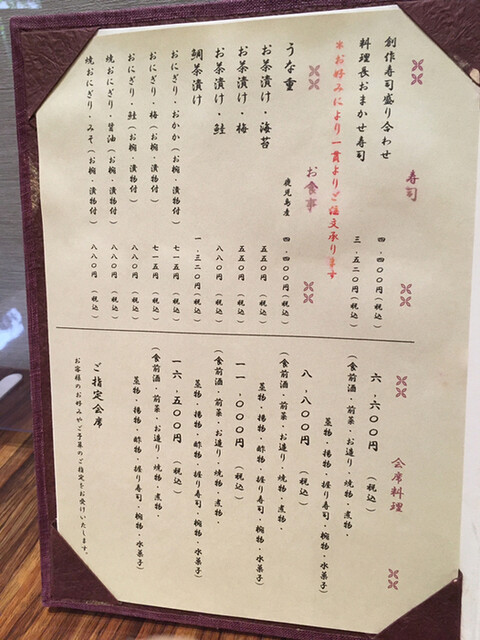 寿司
創作寿司盛り合わせ 四、四〇〇円(税込)
料理長おまかせ寿司 三、五二〇円(税込)
※お好みにより一貫よりご注文承ります
お食事
うな重 鹿児島産 四、四〇〇円(税込)
お茶漬け・海苔 五五〇円(税込)
お茶漬け・梅 五五〇円(税込)
お茶漬け・鮭 八八〇円(税込)
鯛茶漬け 一、三二〇円(税込)
おにぎり・おかか(お椀・漬物付) 七一五円(税込)
おにぎり・梅(お椀・漬物付) 七一五円(税込)
おにぎり・鮭(お椀・漬物付) 八八〇円(税込)
焼おにぎり・醤油(お椀・漬物付) 八八〇円(税込)
焼おにぎり・みそ(お椀・漬物付) 八八〇円(税込)
会席料理
六、六〇〇円(税込)
(食前酒・前菜・お造り・焼物・煮物・
蒸物・揚物・握り寿司・椀物・水菓子)
八、八〇〇円(税込)
(食前酒・前菜・お造り・焼物・煮物・
蒸物・揚物・酢物・握り寿司・椀物・水菓子)
一一、〇〇〇円(税込)
(食前酒・前菜・お造り・焼物・煮物・
蒸物・揚物・酢物・握り寿司・椀物・水菓子)
一六、五〇〇円(税込)
(食前酒・前菜・お造り・焼物・煮物・
蒸物・揚物・酢物・握り寿司・椀物・水菓子)
ご指定会席
お客様のお好みやご予算のご指定をお受けいたします。